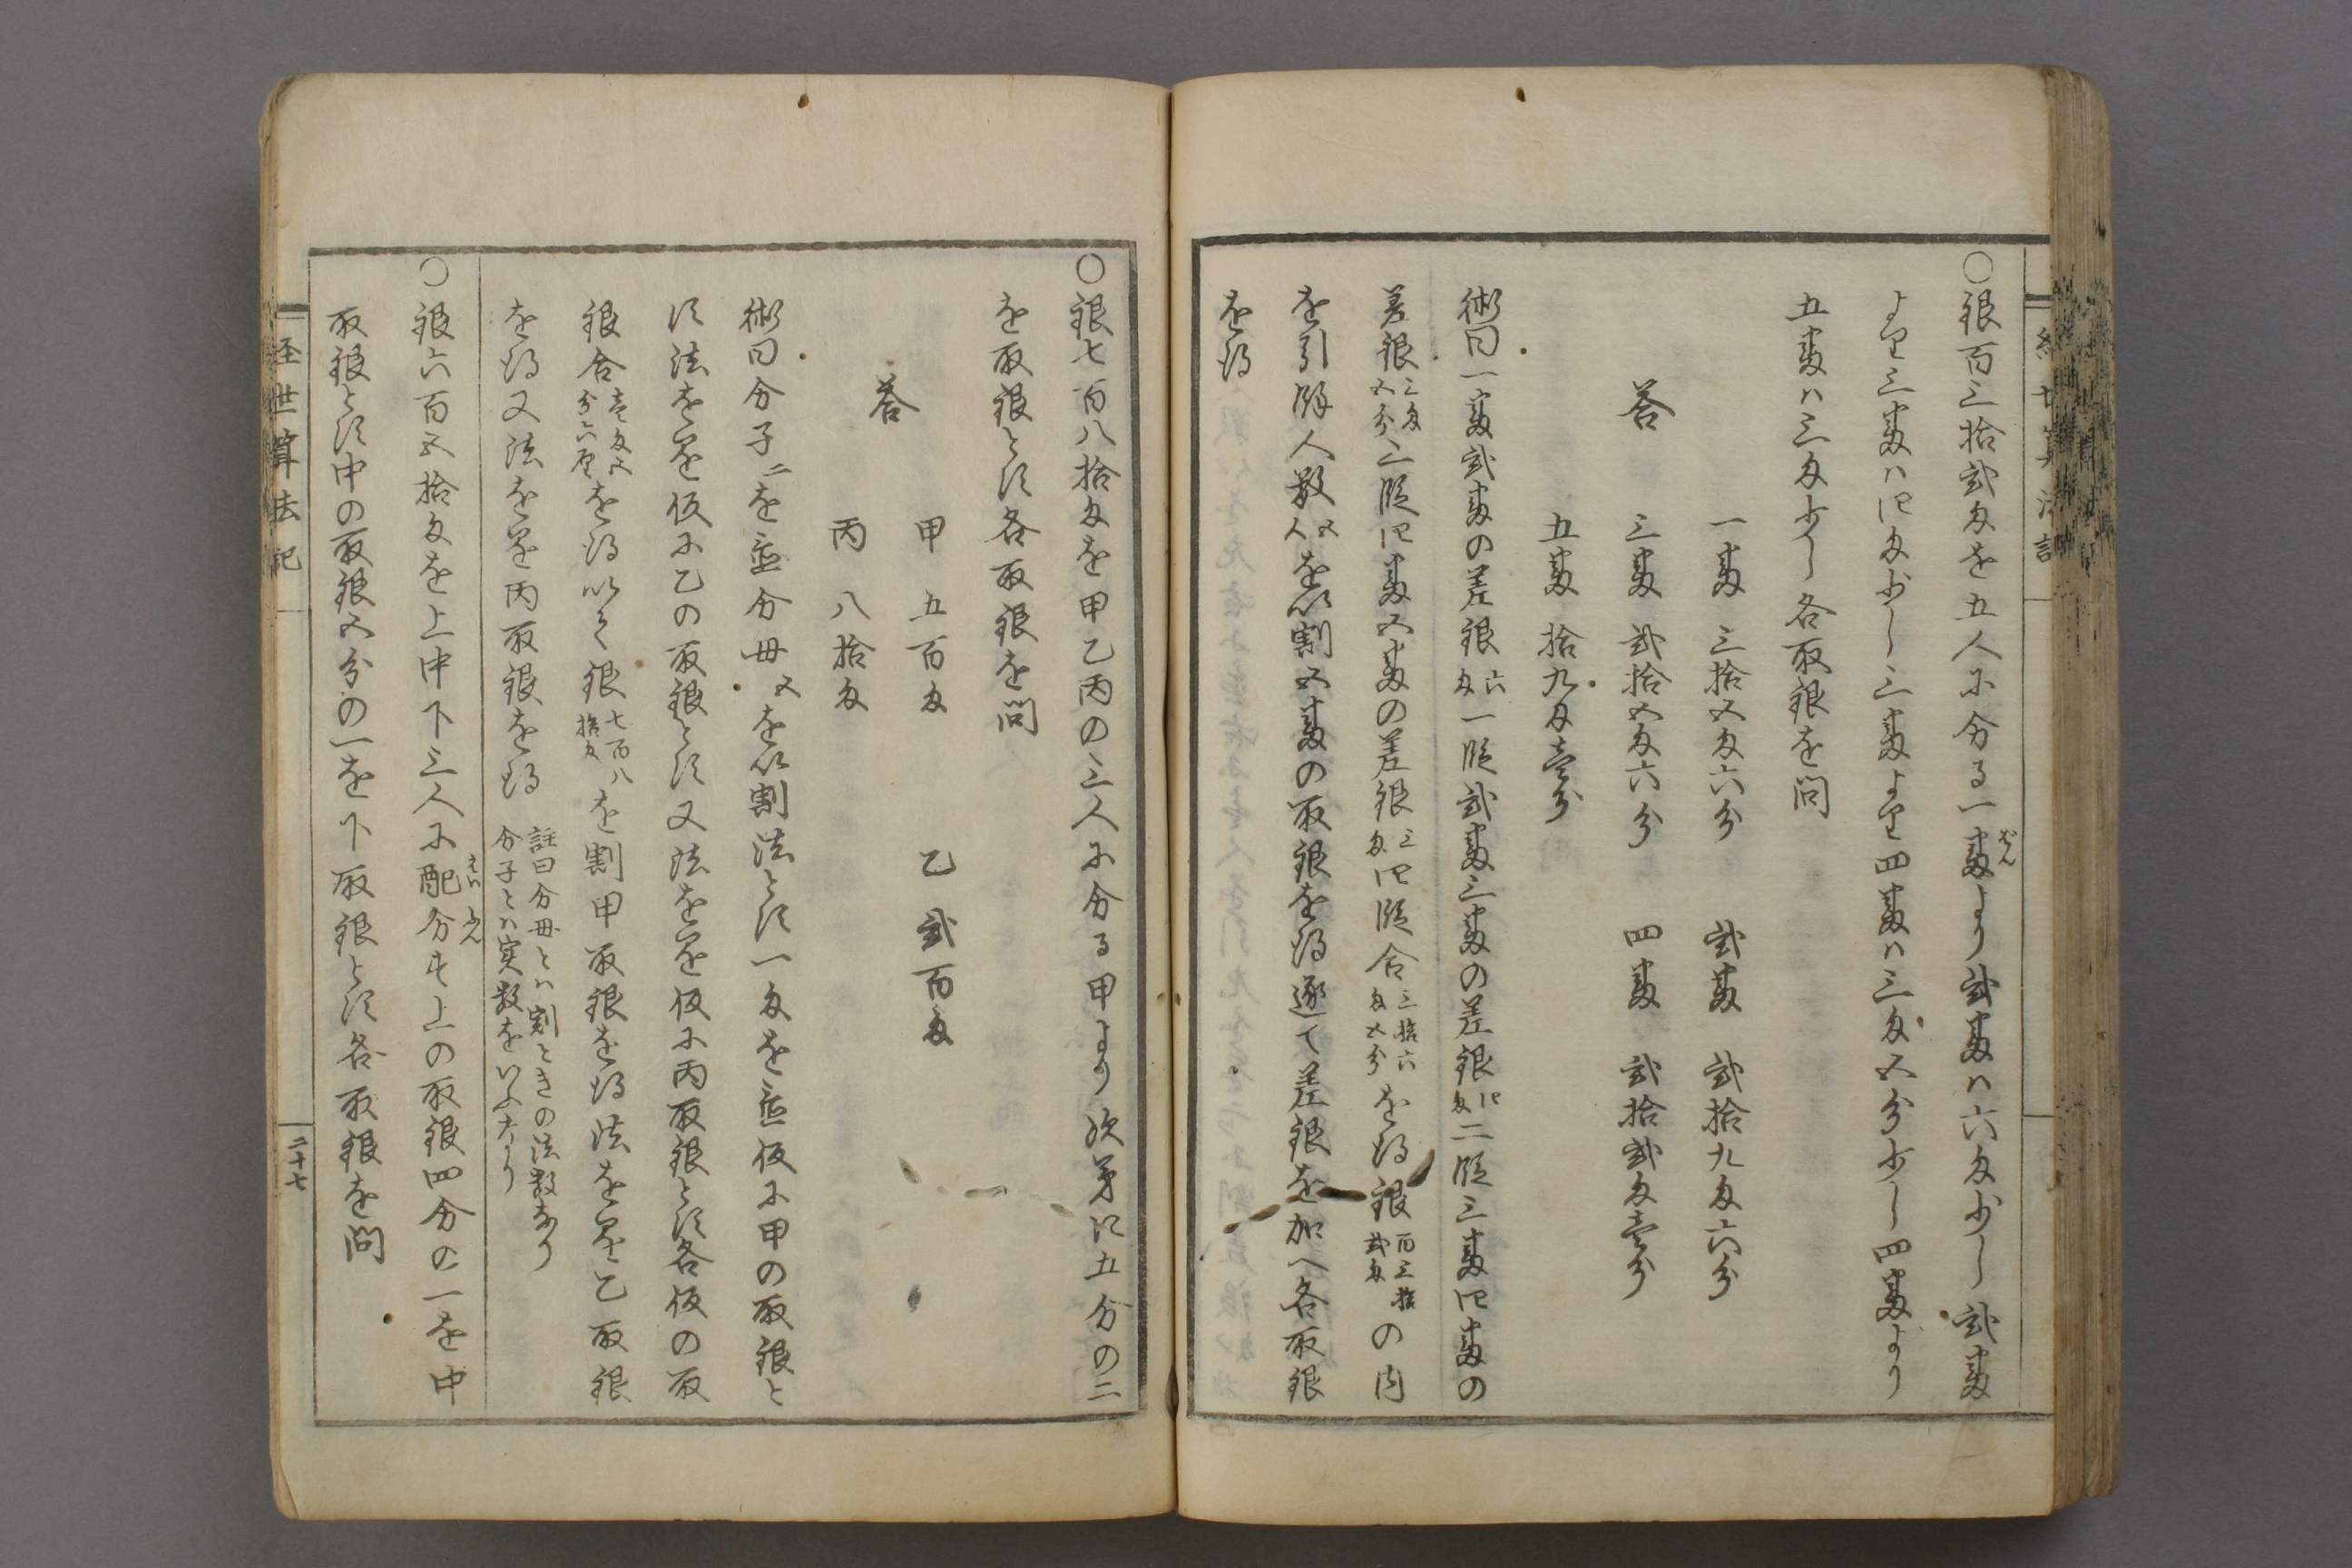 経世算法記
○銀百三拾弐匁を五人に分る一番より弐番ハ六匁少し弐番
より三番ハ四匁少し三番より四番ハ三匁五分少し四番より
五番ハ三匁少し各取銀を問
答
一番 三拾五匁六分 弐番 弐拾九匁六分
三番 弐拾五匁六分 四番 弐拾弐匁壱分
五番 拾九匁壱分
術曰一番弐番の差銀六匁一段弐番三番の差銀四匁二段三番四番の
差銀三匁五分三段四番五番の差銀三匁四段合三拾六匁五分を得銀百三拾弐匁の内
を引餘人数五人を以割五番の取銀を得逐て差銀を加へ各取銀
を得
○銀七百八拾匁を甲乙丙の三人に分る甲より次第に五分の二
を取銀とす各取銀を問
答
甲 五百匁 乙 弐百匁
丙 八拾匁
術曰分子二を置分母五を以割法とす一匁を置仮に甲の取銀と
す法を置仮に乙の取銀とす又法を置仮に丙取銀とす各仮の取
銀合壱匁五分六厘を得以て銀七百八拾匁を割甲取銀を得法を置乙取銀
を得又法を置丙取銀を得 註曰分母とハ割ときの法数なり
分子とハ実数をいふなり
○銀六百五拾匁を上中下三人に配分す上の取銀四分の一を中
取銀とす中の取銀五分の一を下取銀とす各取銀を問
経世算法記
二十七